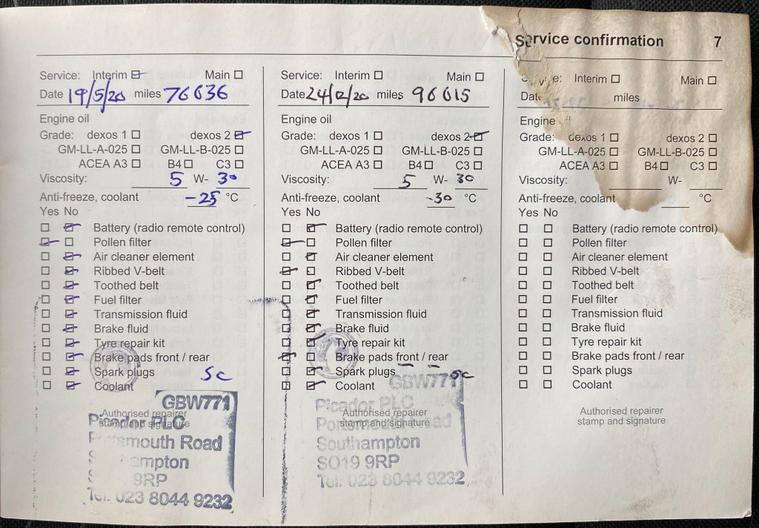 Service confirmation 7
Service: Interim Main
Date 19/5/20 miles 76636
Engine oil
Grade: dexos 1 dexos 2
GM-LL-A-025 GM-LL-B-025
ACEA A3 B4 C3
Viscosity: 5 W- 30
Anti-freeze, coolant -25 °C
Yes No
Battery (radio remote control)
Pollen filter
Air cleaner element
Ribbed V-belt
Toothed belt
Fuel filter
Transmission fluid
Brake fluid
Tyre repair kit
Brake pads front / rear
Spark plugs SC
Coolant
GBW771
Authorised repairer
stamp and signature
Picador PLC
mouth Road
mpton
9RP
Tel: 023 8044 9232
Service: Interim Main
Date 24/2/20 miles 96615
Engine oil
Grade: dexos 1 dexos 2
GM-LL-A-025 GM-LL-B-025
ACEA A3 B4 C3
Viscosity: 5 W- 30
Anti-freeze, coolant -30 °C
Yes No
Battery (radio remote control)
Pollen filter
Air cleaner element
Ribbed V-belt
Toothed belt
Fuel filter
Transmission fluid
Brake fluid
Tyre repair kit
Brake pads front / rear
Spark plugs SC
Coolant
GBW771
Authorised repairer
stamp and signature
Picador PLC
Southampton
SO19 9RP
Tel: 023 8044 9232
Interim Main
miles
Engine
Grade: dexos 1 dexos 2
GM-LL-A-025 GM-LL-B-025
ACEA A3 B4 C3
Viscosity: W-
Anti-freeze, coolant °C
Yes No
Battery (radio remote control)
Pollen filter
Air cleaner element
Ribbed V-belt
Toothed belt
Fuel filter
Transmission fluid
Brake fluid
Tyre repair kit
Brake pads front / rear
Spark plugs
Coolant
Authorised repairer
stamp and signature